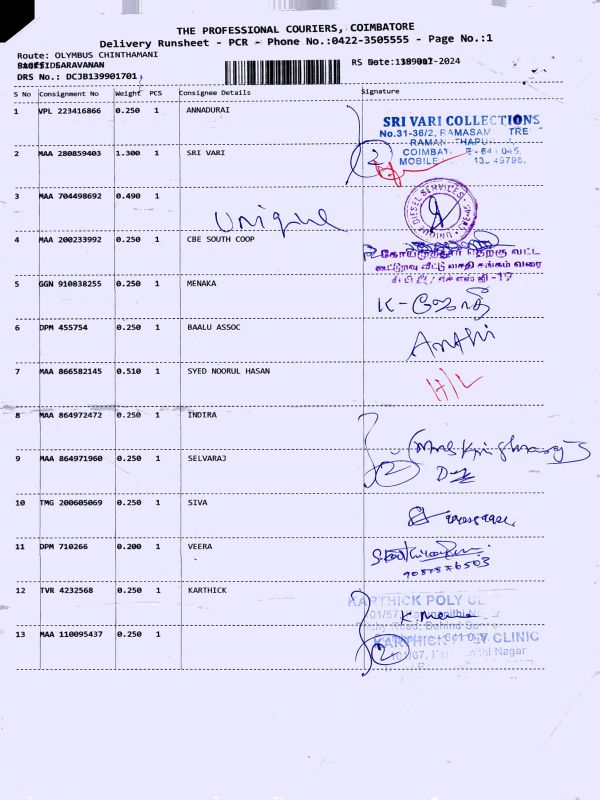 THE PROFESSIONAL COURIERS, COIMBATORE
Delivery Runsheet - PCR - Phone No.:0422-3505555 - Page No.:1
Route: OLYMBUS CHINTHAMANI
SARAVANAN
DRS No.: DCJB139901701
S No Consignment No Weight PCS Consignee Details Signature
1 VPL 223416866 0.250 1 ANNADURAI
SRI VARI COLLECTIONS
No.31-36/2, RAMASAM
2 MAA 280859403 1.300 1 SRI VARI
MOBILE
2
3 MAA 704498692 0.490 1
DIESEL SERVICES
Unique
4 MAA 200233992 0.250 1 CBE SOUTH COOP
தெற்கு வட்ட
கூட்டுறவு வீட்டு வசதி சங்கம் வரை
5 GGN 910838255 0.250 1 MENAKA
6 DPM 455754 0.250 1 BAALU ASSOC
7 MAA 866582145 0.510 1 SYED NOORUL HASAN
H/L
8 MAA 864972472 0.250 1 INDIRA
9 MAA 864971960 0.250 1 SELVARAJ
2
10 TMG 200605069 0.250 1 SIVA
11 DPM 710266 0.200 1 VEERA
12 TVR 4232568 0.250 1 KARTHICK
KARTHICK POLY
13 MAA 110095437 0.250 1
CLINIC
Nagar
2